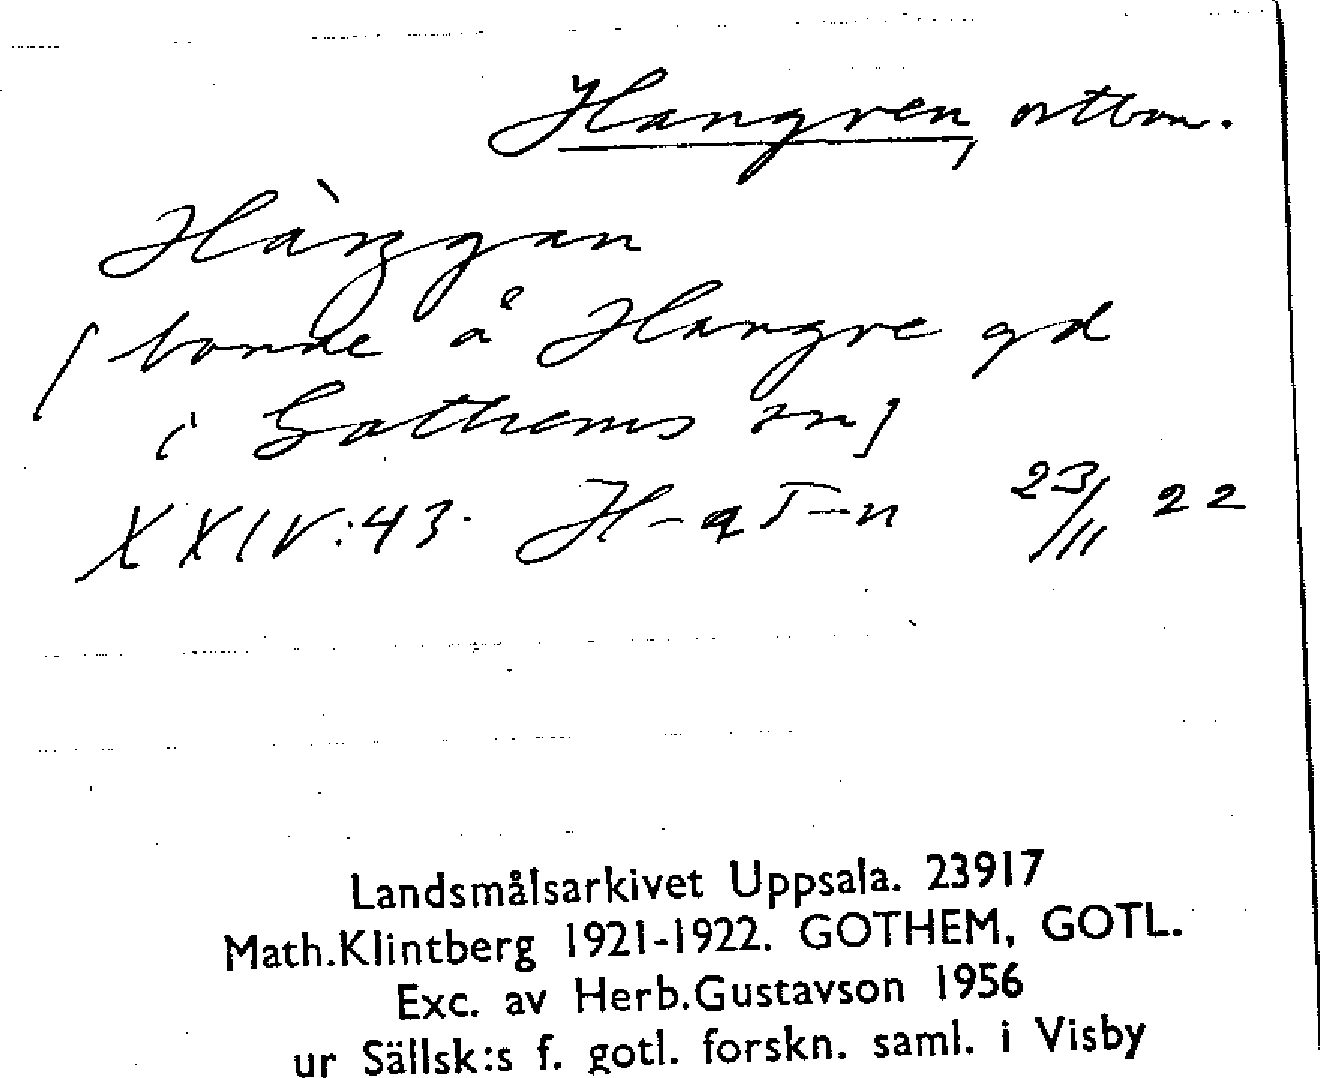 Hangren, ortbon.
Hàŋgan
[bonde å Hangre gd
i Gothems sn]
XXIV:43. H-q T-n 23/11 22
Landsmålsarkivet Uppsala. 23917
Math.Klintberg 1921-1922. GOTHEM, GOTL.
Exc. av Herb.Gustavson 1956
ur Sällsk:s f. gotl. forskn. saml. i Visby